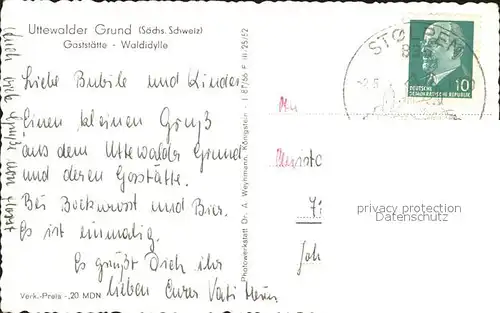 Uttewalder Grund (Sächs. Schweiz)
Gaststätte - Waldidylle
Liebe Bubile und Kinder
Einen kleinen Gruß
aus dem Uttewalder Grund
und deren Gasstätte.
Bei Bockwurst und Bier.
Es ist einmalig.
Es grüßt Dich ihr
lieben Eurer Vati
Verk.-Preis -,20 MDN
Auch viele Grüße von
Photowerkstatt Dr. A. Weyhmann, Königstein
STOLPEN
10
DEUTSCHE
DEMOKRATISCHE REPUBLIK
An
privacy protection
Datenschutz